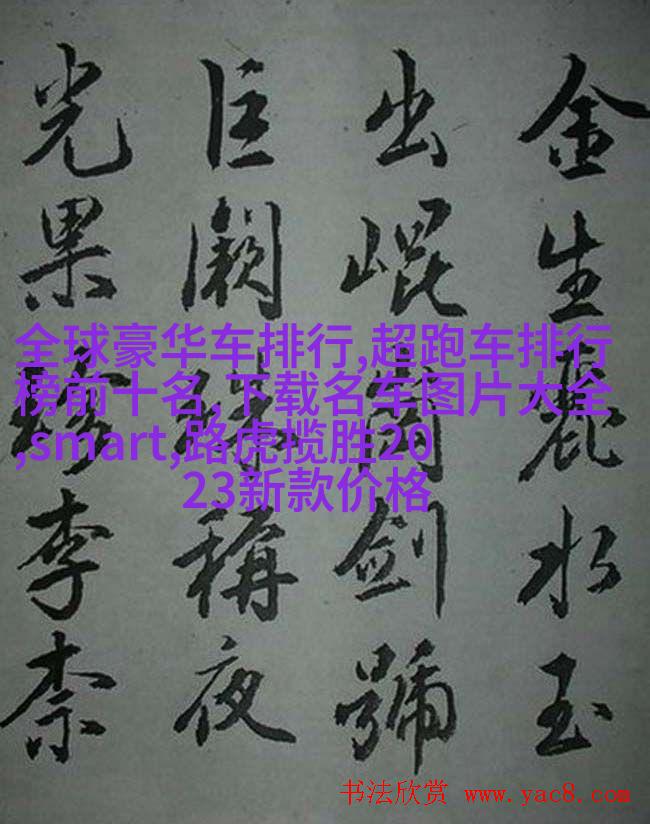 金生麗水玉
出崐岡劍號
巨闕珠稱夜
光果珍李柰
全球豪华车排行,超跑车排行
榜前十名,下载名车图片大全
,smart,路虎揽胜20
23新款价格
书法欣赏 www.yac8.com